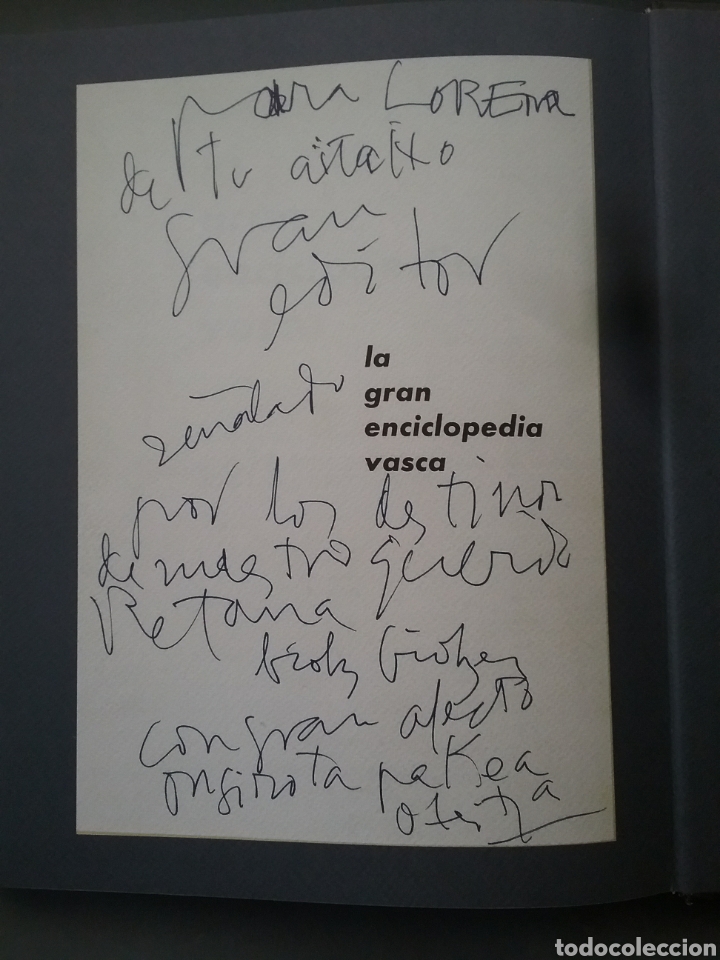 para LOREna
de tu aitatxo
gran
editor
la
gran
enciclopedia
vasca
señalado
por los destinos
de nuestro querido
Retana
biotz biotzez
con gran afecto
pakea
oteitza
todocoleccion